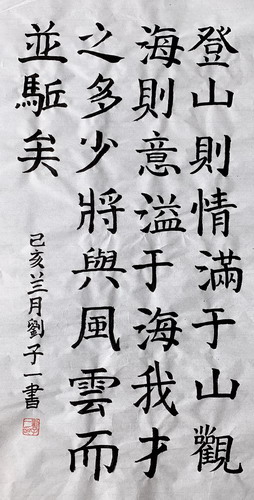 登山則情滿于山觀
海則意溢于海我才
之多少將與風雲而
並駈矣
己亥兰月劉子一書